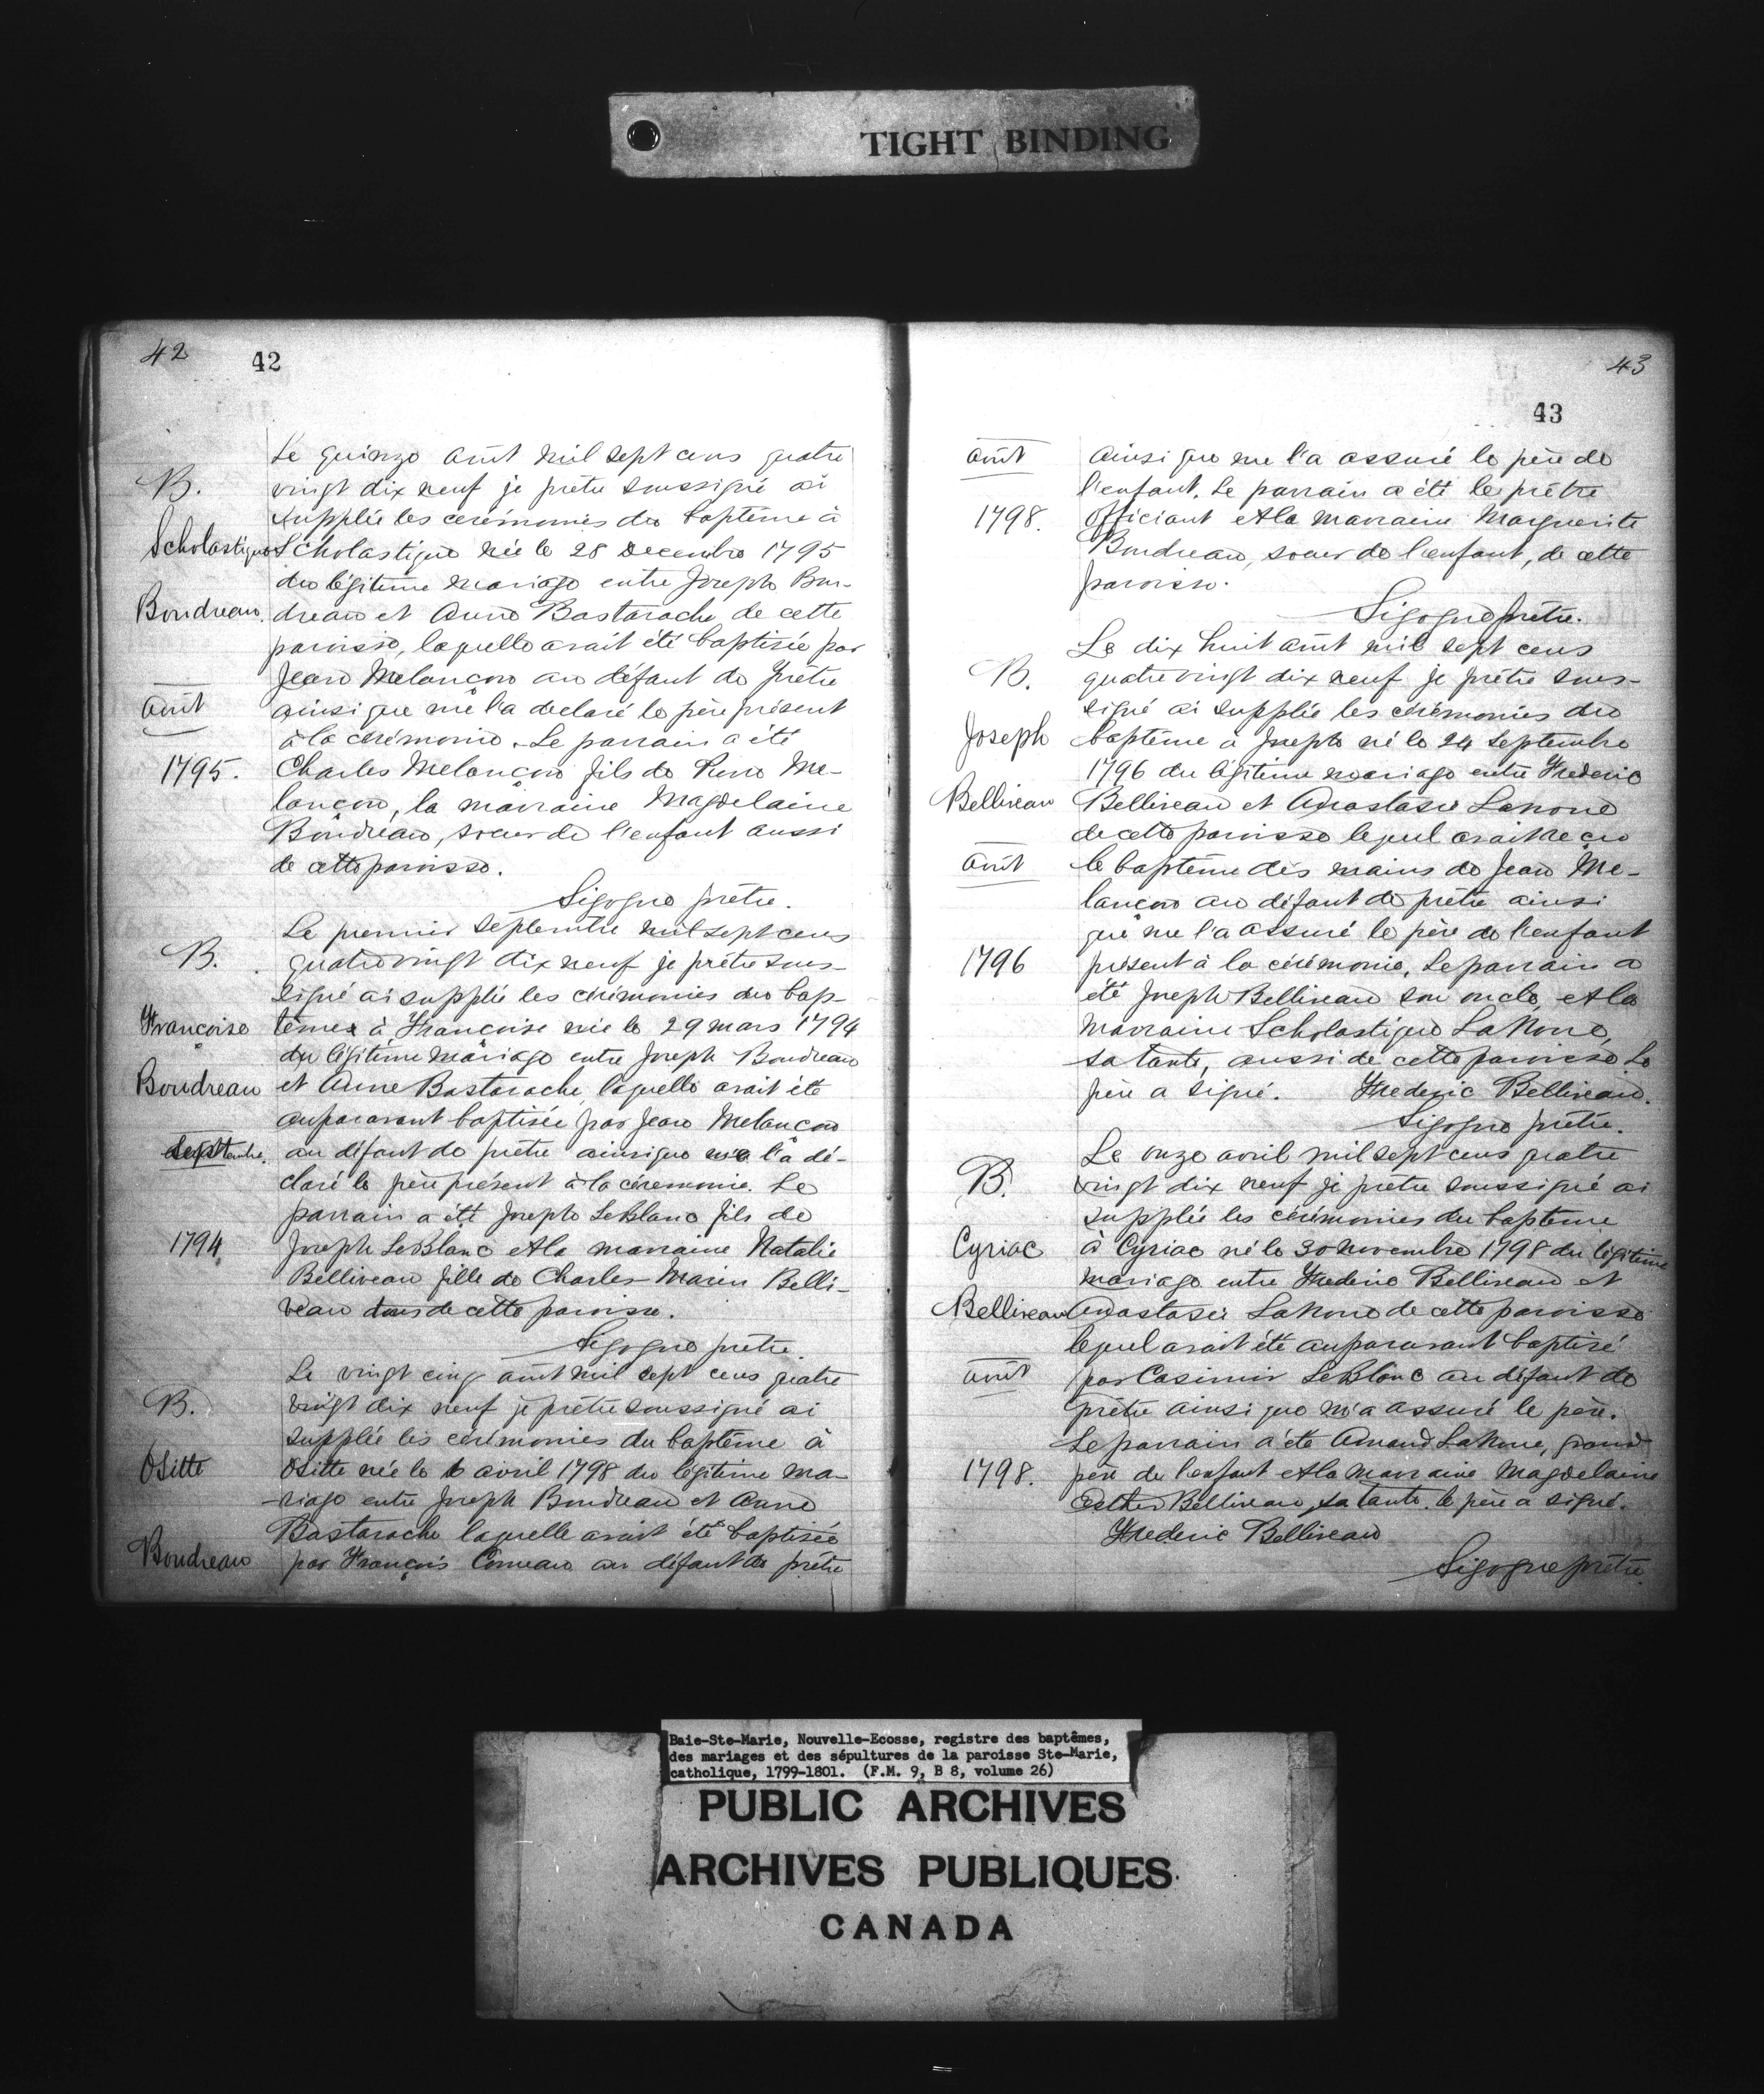 TIGHT BINDING
42
42
Le quinze août mil sept cens quatre
B.
vingt dix neuf je prêtre soussigné ai
supplée les cerémonies du baptême à
Scholastique
Scholastique née le 28 Decembre 1795
du légitime mariage entre Joseph Bou-
Boudreau.
dreau et Anne Bastarache de cette
paroisse, laquelle avait été baptisée par
Jean Melançon au défaut de Prêtre
août
ainsi que me l'a declaré le père présent
à la cérémonie. Le parrain a été
1795.
Charles Melançon fils de Pierre Me-
lançon, la marraine Magdelaine
Boudreau, soeur de l'enfant aussi
de cette paroisse.
Sigogne prêtre.
Le premier septembre mil sept cens
B.
quatre vingt dix neuf je prêtre sous-
signé ai supplée les cérémonies du bap-
Françoise
têmes à Françoise née le 29 mars 1794
du légitime mariage entre Joseph Boudreau
Boudreau
et Anne Bastarache, laquelle avait été
auparavant baptisée par Jean Melançon
Septembre.
au défaut de prêtre ainsi que me l'a dé-
claré le père présent à la céremonie. Le
parrain a été Joseph LeBlanc fils de
1794
Joseph LeBlanc et la marraine Natalie
Belliveau fille de Charles-Marin Belli-
veau tous de cette paroisse.
Sigogne prêtre.
Le vingt cinq août mil sept cens quatre
B.
vingt dix neuf je prêtre soussigné ai
supplée les cérémonies du baptême à
Ositte
Ositte née le 6 avril 1798 du légitime ma-
riage entre Joseph Boudreau et Anne
Bastarache laquelle avait été baptisée
Boudreau
par François Comeau au défaut de prêtre
43
43
août
ainsi que me l'a assuré le père de
l'enfant. Le parrain a été le prêtre
1798.
officiant et la marraine Marguerite
Boudreau, soeur de l'enfant, de cette
paroisse.
Sigogne prêtre.
Le dix huit août mil sept cens
B.
quatre vingt dix neuf je prêtre sous-
signé ai supplée les cérémonies du
Joseph
baptême à Joseph né le 24 Septembre
1796 du légitime mariage entre Frederic
Belliveau
Belliveau et Anastasie Lanoue
de cette paroisse lequel avait recu
août
le baptême des mains de Jean Me-
lançon au défaut de prêtre ainsi
que me l'a assuré le père de l'enfant
1796
présent à la cérémonie. Le parrain a
été Joseph Belliveau son oncle et la
marraine Scholastique LaNoue,
sa tante, aussi de cette paroisse Le
père a signé. Frederic Belliveau.
Sigogne prêtre.
Le onze avril mil sept cens quatre
B.
vingt dix neuf je prêtre soussigné ai
supplée les cérémonies du baptême
Cyriac
à Cyriac né le 30 Novembre 1798 du légitime
mariage entre Frederic Belliveau et
Belliveau
Anastasie LaNoue de cette paroisse
lequel avait été auparavant baptisé
août
par Casimir LeBlanc au défaut de
prêtre ainsi que m'a assuré le père.
Le parrain a été Amand LaNoue, grand
1798.
père de l'enfant et la marraine Magdelaine
Esther Belliveau, sa tante. le père a signé.
Frederic Belliveau
Sigogne prêtre
Baie-Ste-Marie, Nouvelle-Ecosse, registre des baptêmes,
des mariages et des sépultures de la paroisse Ste-Marie,
catholique, 1799-1801. (F.M. 9, B 8, volume 26)
PUBLIC ARCHIVES
ARCHIVES PUBLIQUES
CANADA